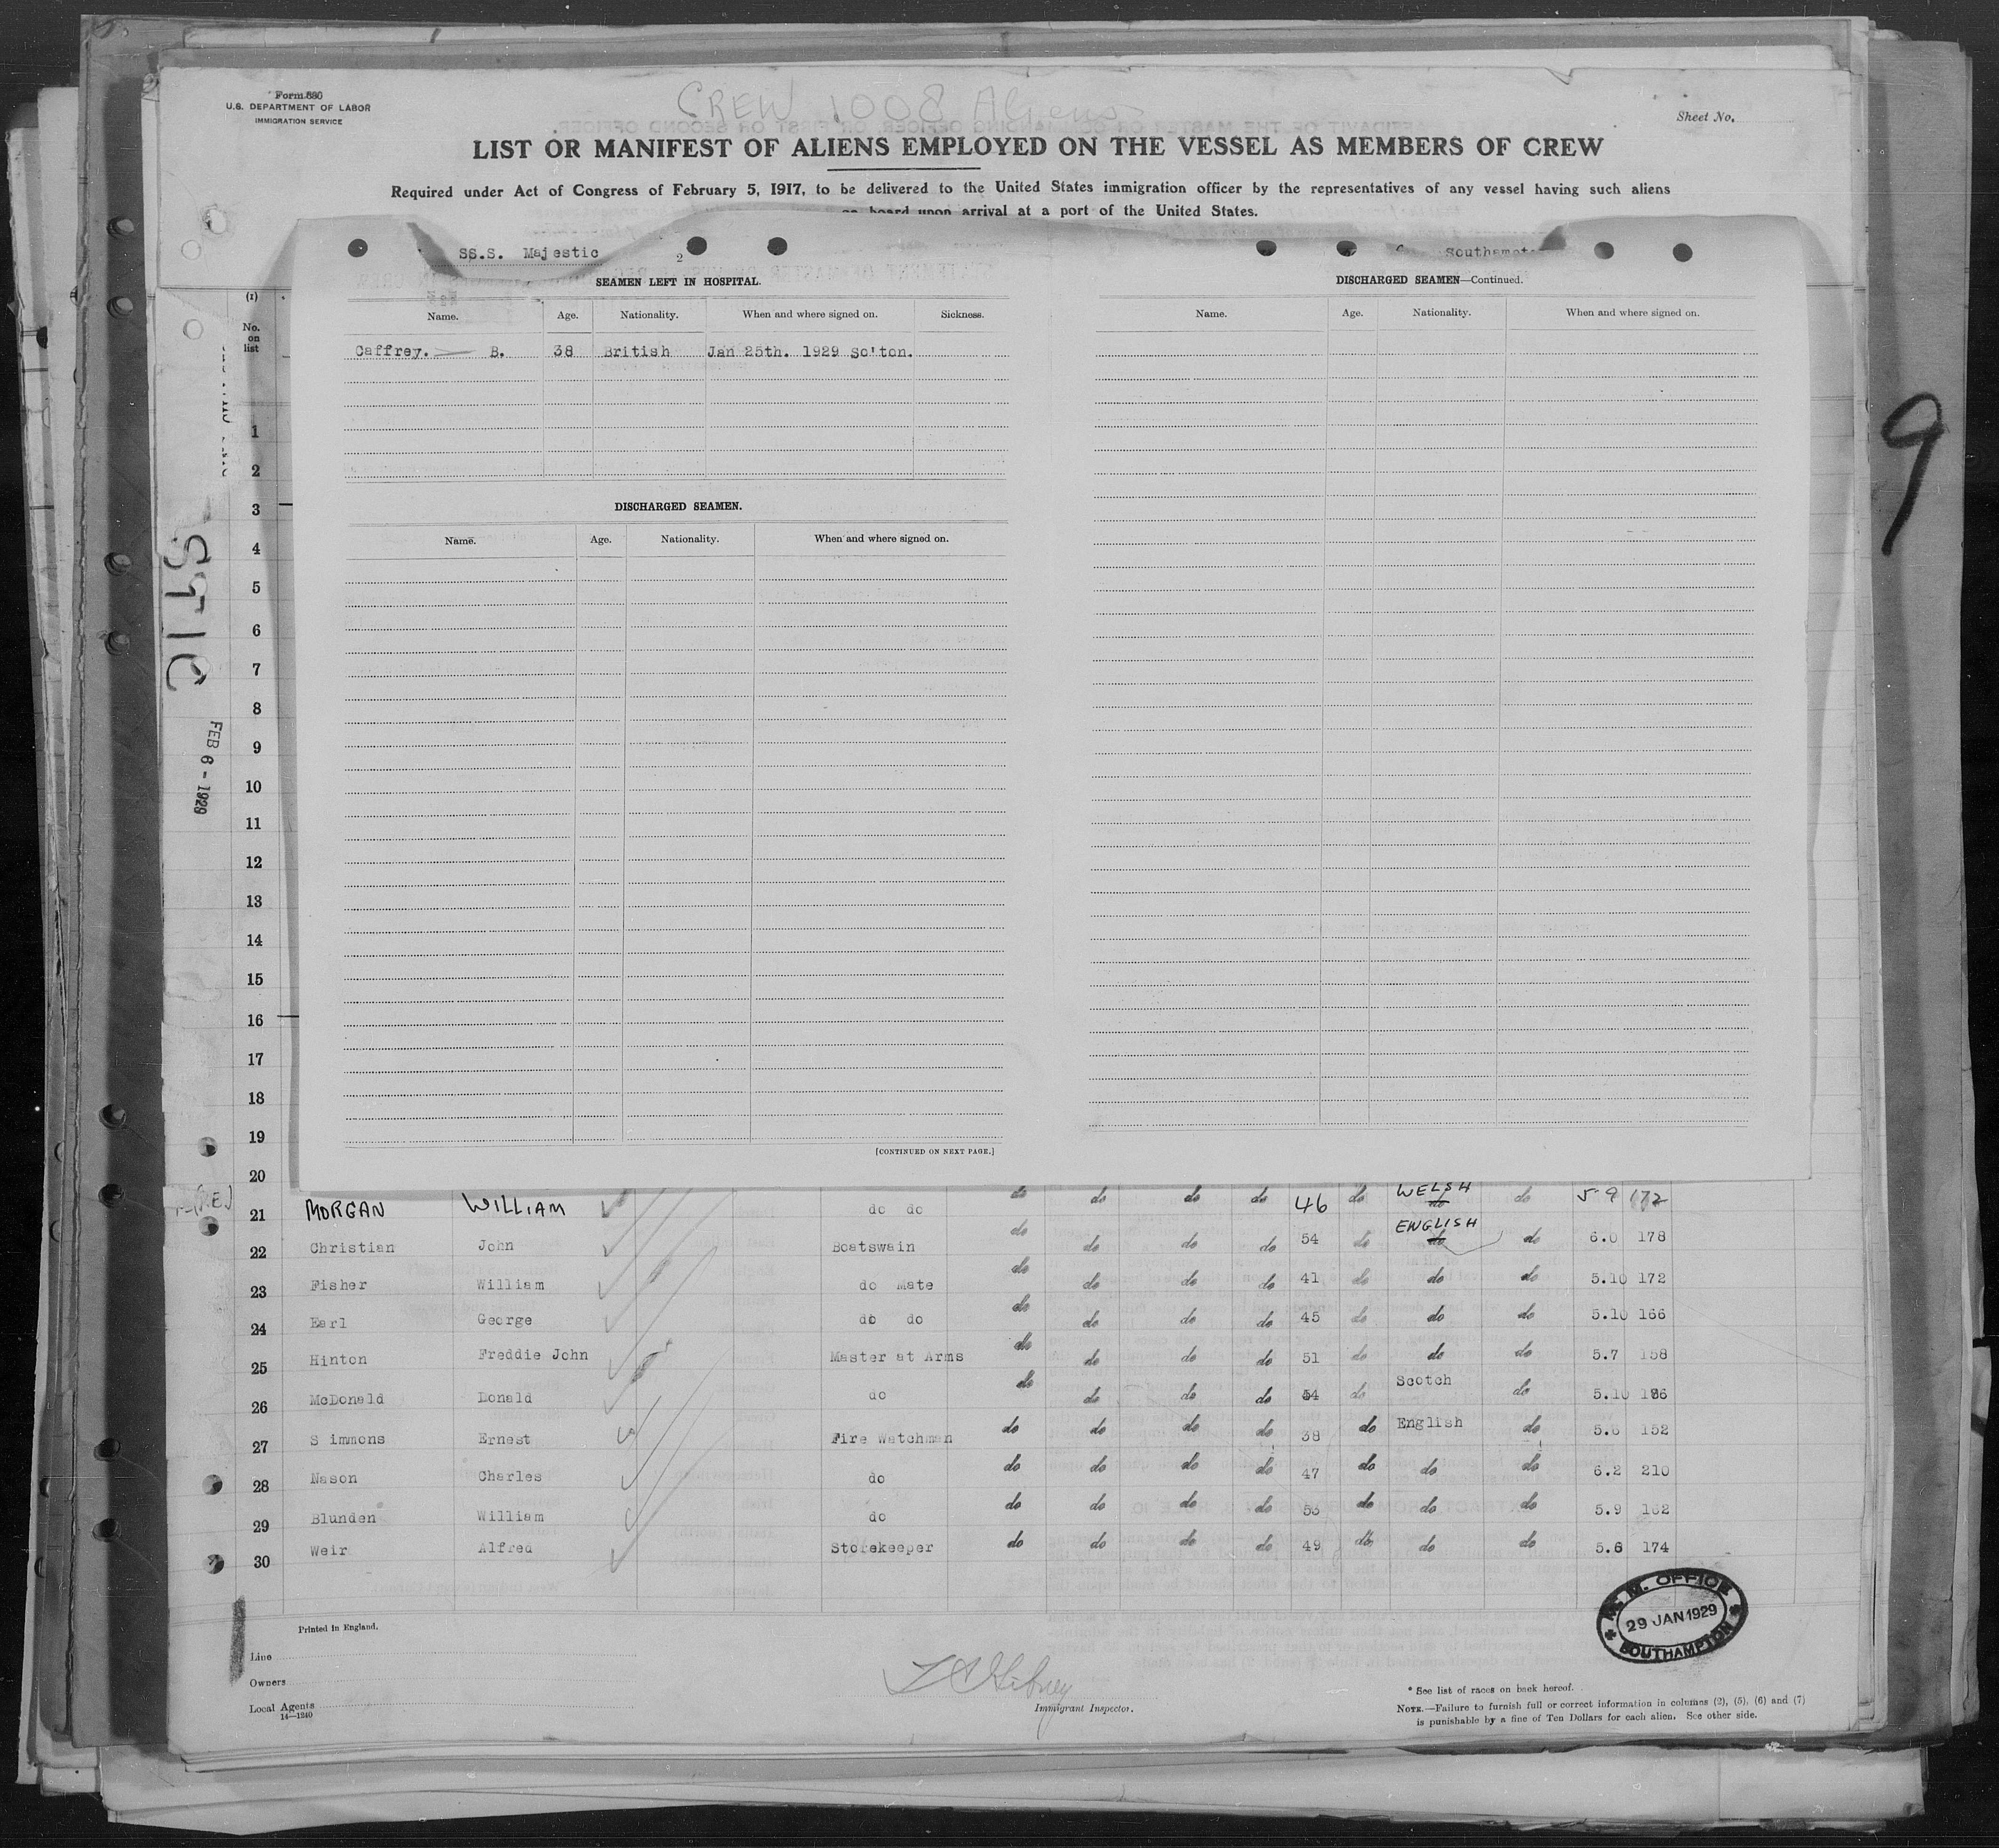 Form 680
U.S. DEPARTMENT OF LABOR
IMMIGRATION SERVICE
CREW 1008 Aliens
Sheet No.
LIST OR MANIFEST OF ALIENS EMPLOYED ON THE VESSEL AS MEMBERS OF CREW
Required under Act of Congress of February 5, 1917, to be delivered to the United States immigration officer by the representatives of any vessel having such aliens
on board upon arrival at a port of the United States.
SS.S. Majestic 2
SEAMEN LEFT IN HOSPITAL.
Name. Age. Nationality. When and where signed on. Sickness.
Caffrey. B. 38 British Jan 25th. 1929 So'ton.
DISCHARGED SEAMEN.
Name. Age. Nationality. When and where signed on.
[CONTINUED ON NEXT PAGE.]
DISCHARGED SEAMEN—Continued.
Name. Age. Nationality. When and where signed on.
9
FEB 6 - 1929
(1)
No. on list
1
2
3
4
5
6
7
8
9
10
11
12
13
14
15
16
17
18
19
20
21 MORGAN WILLIAM do do do do do do 46 do WELSH do do 5 9 172
22 Christian John Boatswain do do do do 54 do ENGLISH do do 6.0 178
23 Fisher William do Mate do do do do 41 do do do 5.10 172
24 Earl George do do do do do do 45 do do do 5.10 166
25 Hinton Freddie John Master at Arms do do do do 51 do do do 5.7 158
26 McDonald Donald do do do do do 54 do Scotch do 5.10
27 S immons Ernest Fire Watchman do do do do 38 do English do 5.6 152
28 Nason Charles do do do do do 47 do do do 6.2 210
29 Blunden William do do do do do 53 do do do 5.9 162
30 Weir Alfred Storekeeper do do do do 49 do do do 5.6 174
Printed in England.
Line
Owners
Local Agents
14—1240
Immigrant Inspector.
M. M. OFFICE
29 JAN 1929
SOUTHAMPTON
* See list of races on back hereof.
NOTE.—Failure to furnish full or correct information in columns (2), (5), (6) and (7)
is punishable by a fine of Ten Dollars for each alien. See other side.